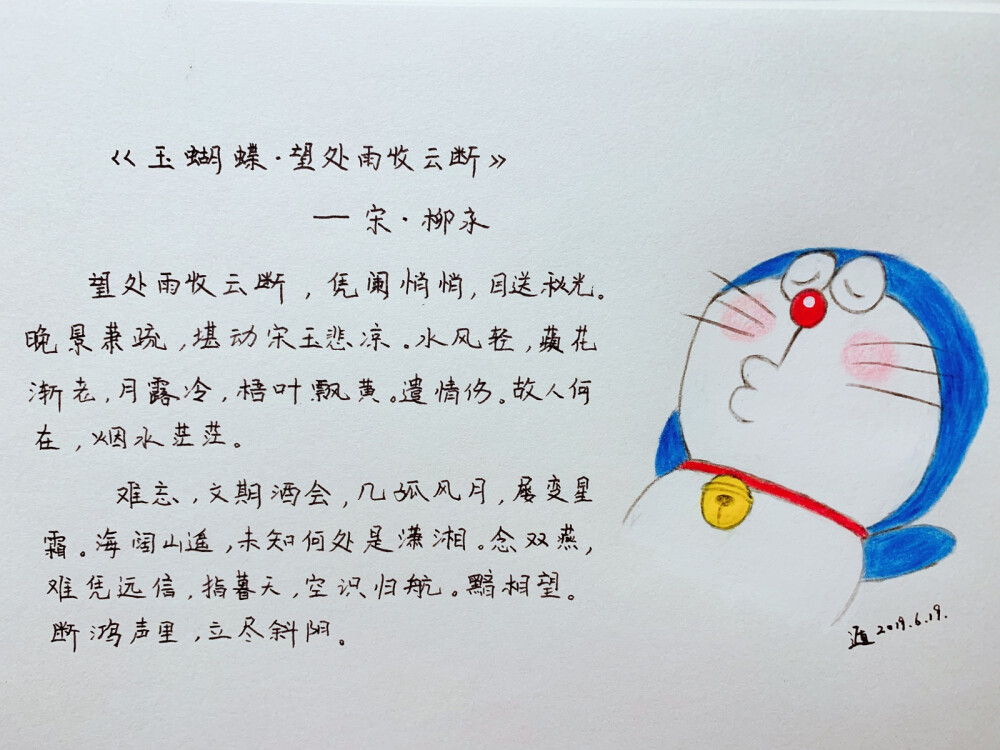 《玉蝴蝶·望处雨收云断》
— 宋·柳永
望处雨收云断，凭阑悄悄，目送秋光。
晚景萧疏，堪动宋玉悲凉。水风轻，蘋花
渐老，月露冷，梧叶飘黄。遣情伤。故人何
在，烟水茫茫。
难忘，文期酒会，几孤风月，屡变星
霜。海阔山遥，未知何处是潇湘。念双燕，
难凭远信，指暮天，空识归航。黯相望。
断鸿声里，立尽斜阳。
2019.6.19.